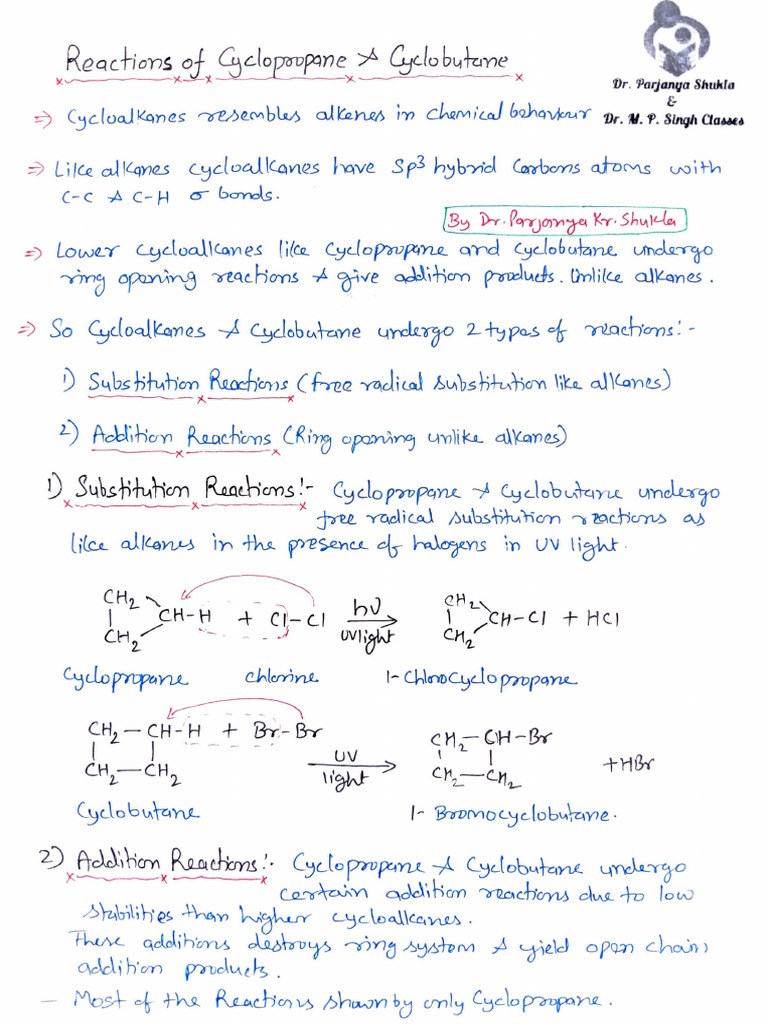 Reactions of Cyclopropane & Cyclobutane
Dr. Parjanya Shukla
&
Dr. M. P. Singh Classes
⇒ Cycloalkanes resembles alkenes in chemical behaviour
⇒ Like alkanes cycloalkanes have Sp3 hybrid carbons atoms with
C-C & C-H σ bonds.
By Dr. Parjanya Kr. Shukla
⇒ Lower cycloalkanes like cyclopropane and cyclobutane undergo
ring opening reactions & give addition products. Unlike alkanes.
⇒ So Cycloalkanes & Cyclobutane undergo 2 types of reactions:-
1) Substitution Reactions (free radical substitution like alkanes)
2) Addition Reactions (Ring opening unlike alkanes)
1) Substitution Reactions:- Cyclopropane & Cyclobutane undergo
free radical substitution reactions as
like alkanes in the presence of halogens in UV light.
CH2 CH2
CH-H + Cl-Cl hν CH-Cl + HCl
CH2 UV light CH2
Cyclopropane chlorine 1-Chlorocyclopropane
CH2-CH-H + Br-Br UV CH2-CH-Br
CH2-CH2 light CH2-CH2 +HBr
Cyclobutane 1-Bromocyclobutane.
2) Addition Reactions:- Cyclopropane & Cyclobutane undergo
certain addition reactions due to low
stabilities than higher cycloalkanes.
These additions destroys ring system & yield open chain
addition products.
- Most of the Reactions shown by only Cyclopropane.